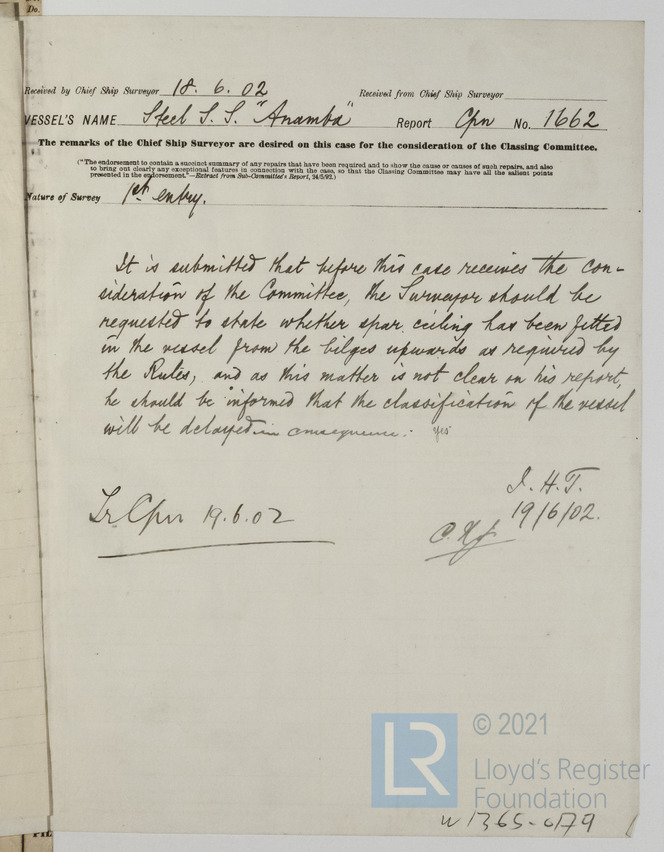 Do.
Received by Chief Ship Surveyor 18.6.02 Received from Chief Ship Surveyor
VESSEL'S NAME Steel S.S. "Anamba" Report Cpn No. 1662
The remarks of the Chief Ship Surveyor are desired on this case for the consideration of the Classing Committee.
("The endorsement to contain a succinct summary of any repairs that have been required and to show the cause or causes of such repairs, and also
to bring out clearly any exceptional features in connection with the case, so that the Classing Committee may have all the salient points
presented in the endorsement."—Extract from Sub-Committee's Report, 24/5/92.)
Nature of Survey 1st entry.
It is submitted that before this case receives the con-
sideration of the Committee, the Surveyor should be
requested to state whether spar ceiling has been fitted
in the vessel from the bilges upwards as required by
the Rules, and as this matter is not clear on his report,
he should be informed that the classification of the vessel
will be delayed in consequence. yes
J.H.T.
19/6/02.
Lr Cpn 19.6.02
© 2021
LR
Lloyd's Register
Foundation
W1365-0179